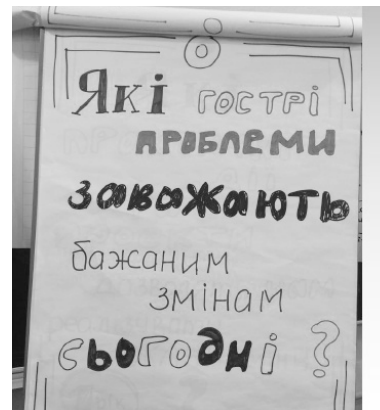 Які гострі
проблеми
заважають
бажаним
змінам
сьогодні?